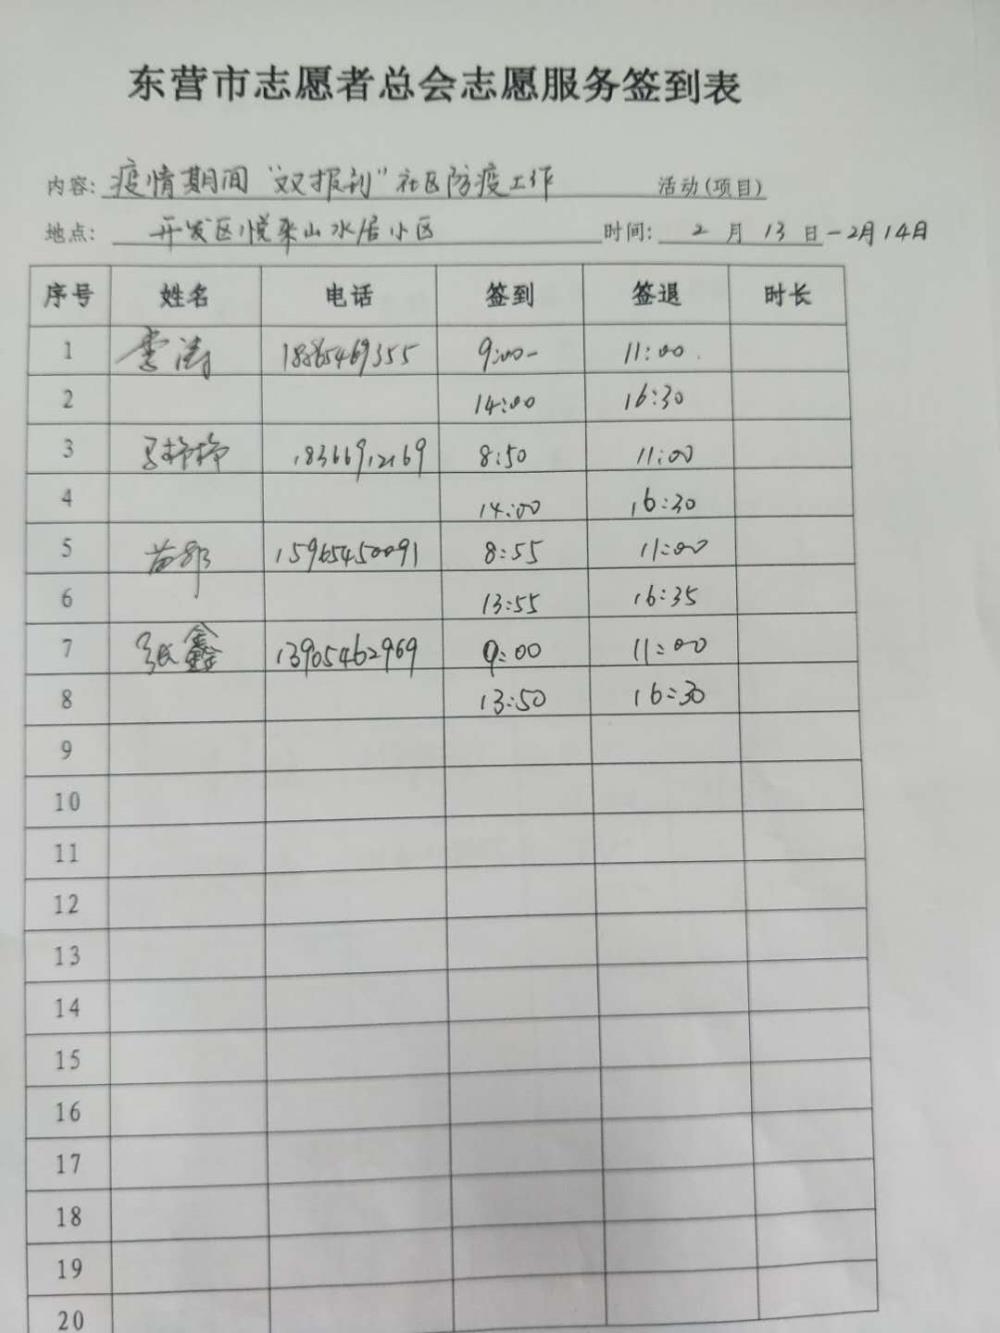 东营市志愿者总会志愿服务签到表
内容: 疫情期间“双报到”社区防疫工作 活动(项目)
地点: 开发区悦来山水居小区 时间: 2 月 13 日-2月14日
序号 姓名 电话 签到 签退 时长
1 李涛 18865469355 9:00- 11:00
2 14:00 16:30
3 马婷婷 18366912169 8:50 11:00
4 14:00 16:30
5 苗郡 15965450091 8:55 11:00
6 13:55 16:35
7 张鑫 13905462969 9:00 11:00
8 13:50 16:30
9
10
11
12
13
14
15
16
17
18
19
20